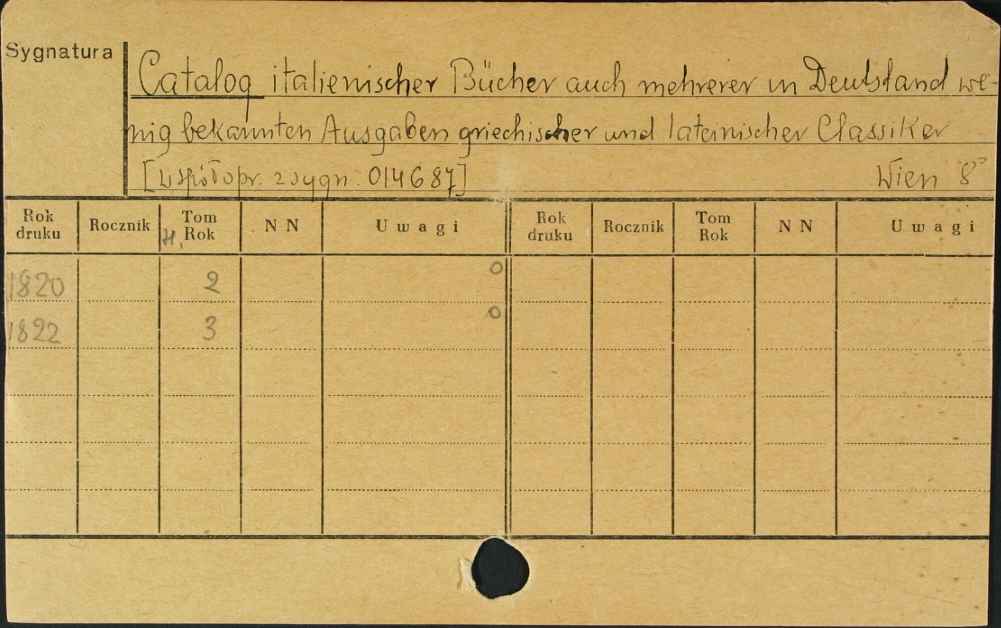 Sygnatura
Catalog italienischer Bücher auch mehrerer in Deutsland we-
nig bekannten Ausgaben griechischer und lateinischer Classiker
[współopr. z sygn. 014687] Wien 8°
Rok druku Rocznik Tom H, Rok NN Uwagi Rok druku Rocznik Tom Rok NN Uwagi
1820 2 o
1822 3 o